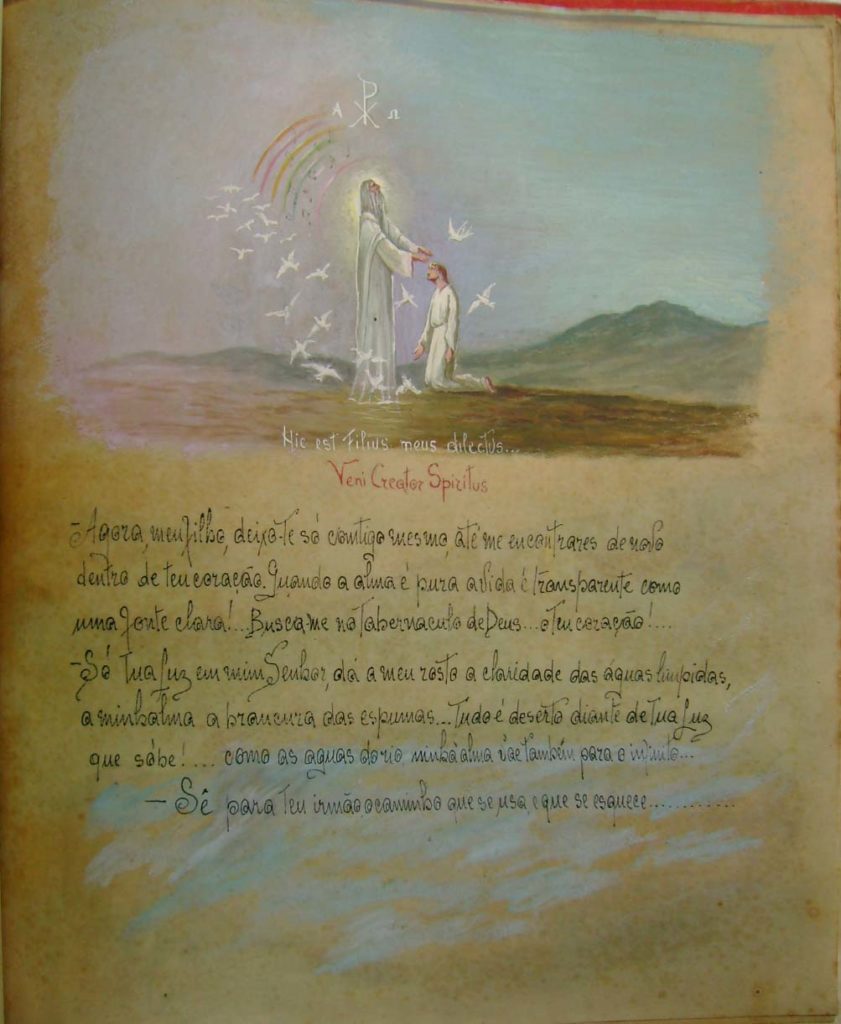 A ☧ Ω
Hic est Filius meus dilectus...
Veni Creator Spiritus
- Agora, meu filho, deixo-te só contigo mesmo, até me encontrares de novo
dentro de teu coração. Quando a alma é pura a vida é transparente como
uma fonte clara!... Busca-me no Tabernaculo de Deus... o teu coração!...
- Só Tua Luz em mim Senhor, dá a meu rosto a claridade das águas limpidas,
a minh'alma a brancura das espumas... Tudo é deserto diante de Tua Luz
que sóbe!.... como as aguas do rio minh'alma vae também para o infinito...
— Sê para teu irmão, o caminho que se usa, e que se esquece............